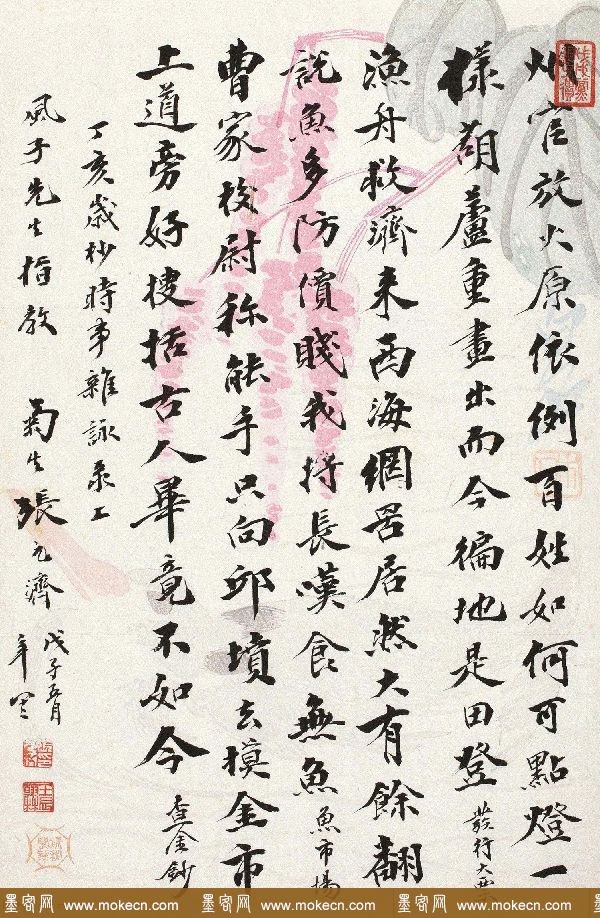 州官放火原依例百姓如何可點燈一
樣葫蘆重畫出而今徧地是田登 發行大票
漁舟救濟來西海網罟居然大有餘翻
說魚多防價賤我將長嘆食無魚 魚市場
曹家校尉称能手只向邱墳去摸金市
上道旁好搜括古人畢竟不如今 查金鈔
丁亥歲杪時事雜詠录工
風子先生指教 菊生張元濟
戊子
墨客网 www.mokecn.com 墨客网 www.mokecn.com 墨客网 www.mokecn.com